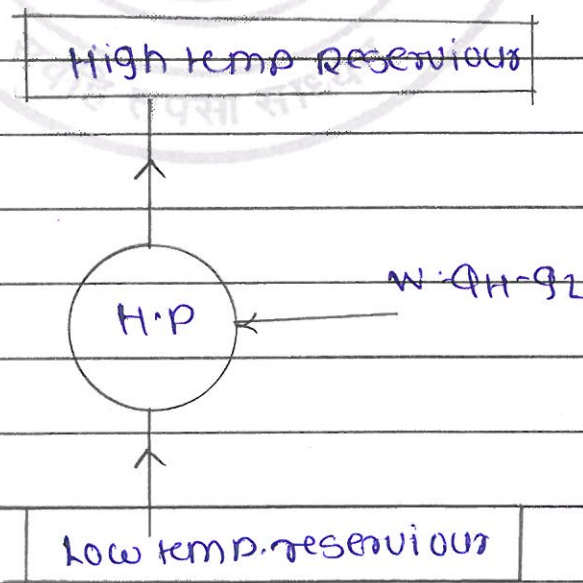 High temp Reserviour
तपसा
H.P
W=QH-QL
Low temp.reserviour